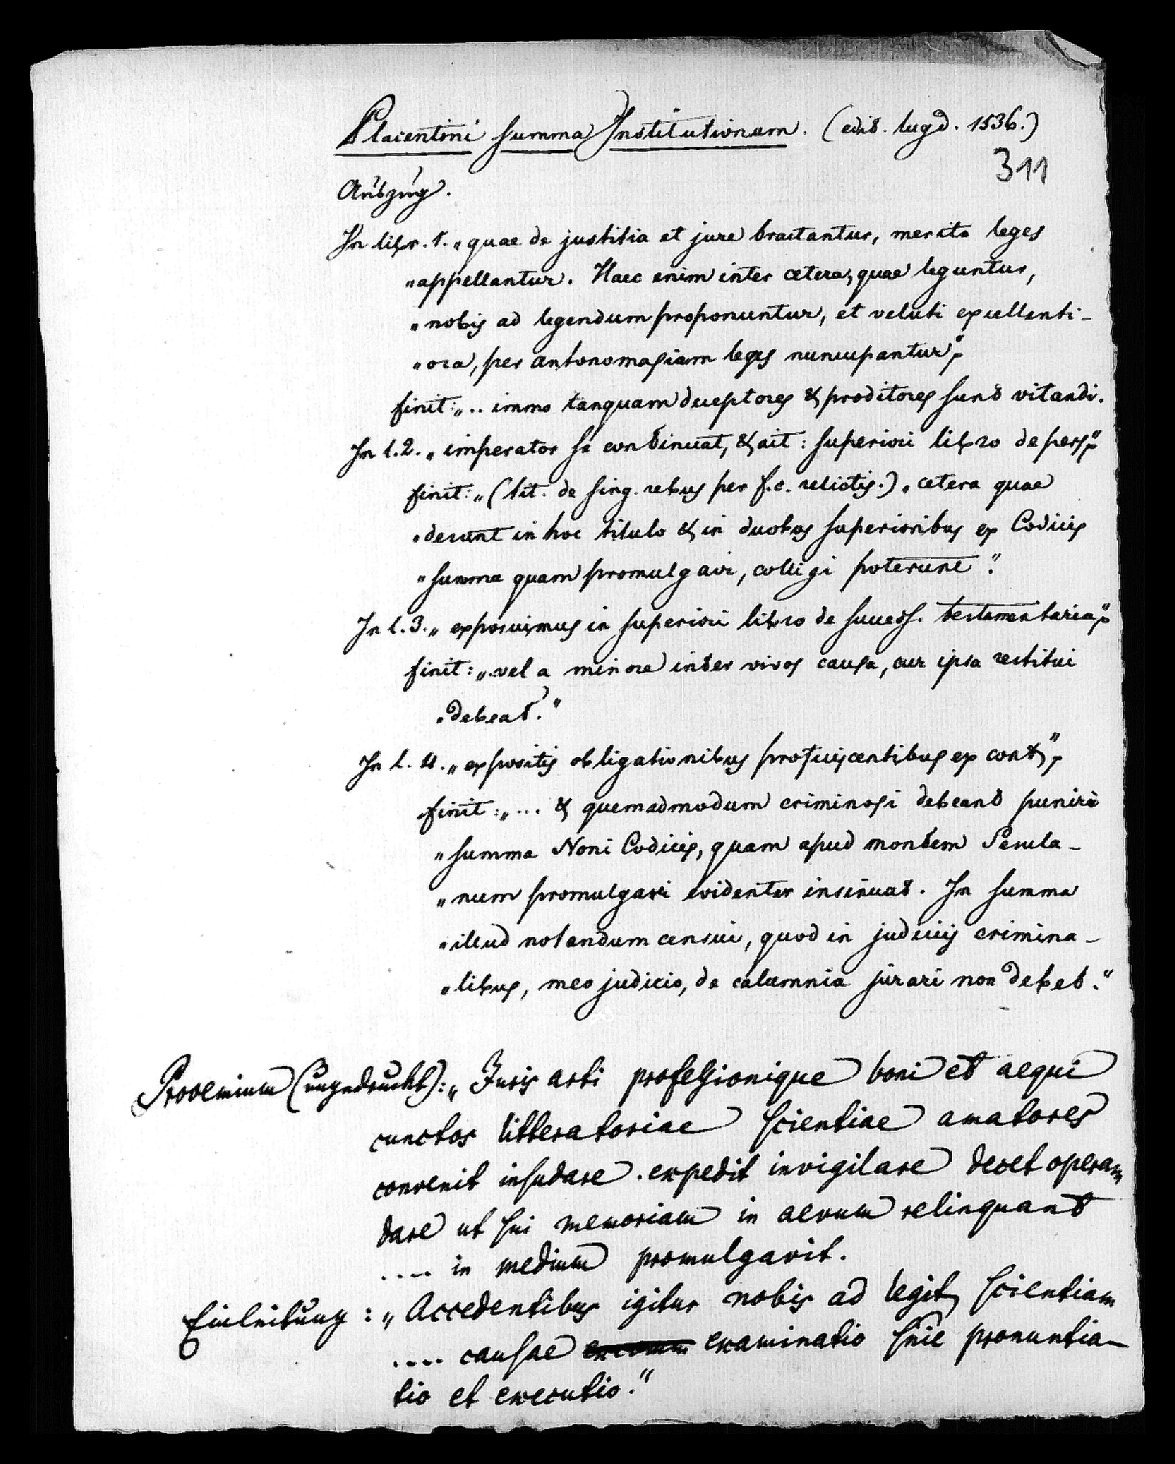 Placentini Summa Institutionum. (edit. lugd. 1536.)
311
Auszug.
In libr. 1. „quae de justitia et jure tractantur, merito leges
„appellantur. Haec enim inter cetera, quae leguntur,
„nobis ad legendum proponuntur, et veluti excellenti-
„ora, per antonomasiam leges nuncupantur";
finit: „.. immo tanquam deceptores & proditores sunt vitandi.
In l. 2. „imperator se continuat, & ait: superiori libro de pers";
finit: „(tit. de sing. rebus per f. c. relictis.) „cetera quae
„desunt in hoc titulo & in duobus superioribus ex Codicis
„summa quam promulgavi, colligi poterunt".
In l. 3. „exposuimus in superiori libro de success. testamentaria";
finit: „vel a minore inter vivos causa, cur ipsa restitui
„debeat."
In l. 4. „expositis obligationibus proficiscentibus ex cont";
finit: „... & quemadmodum criminosi debeant puniri
„summa Noni Codicis, quam apud montem Pessula-
„num promulgavi evidenter insinuat. In summa
„illud notandum censui, quod in judiciis crimina-
„libus, meo judicio, de calumnia jurari non debet."
Prooemium (ungedruckt): „Juris arti professionique boni et aequi
cunctos litteratoriae scientiae amatores
convenit insudare. expedit invigilare decet operam
dare ut sui memoriam in aevum relinquant
.... in medium promulgavit.
Einleitung: „Accedentibus igitur nobis ad legit. scientiam
.... causae examinatio sive pronuntia-
tio et executio."